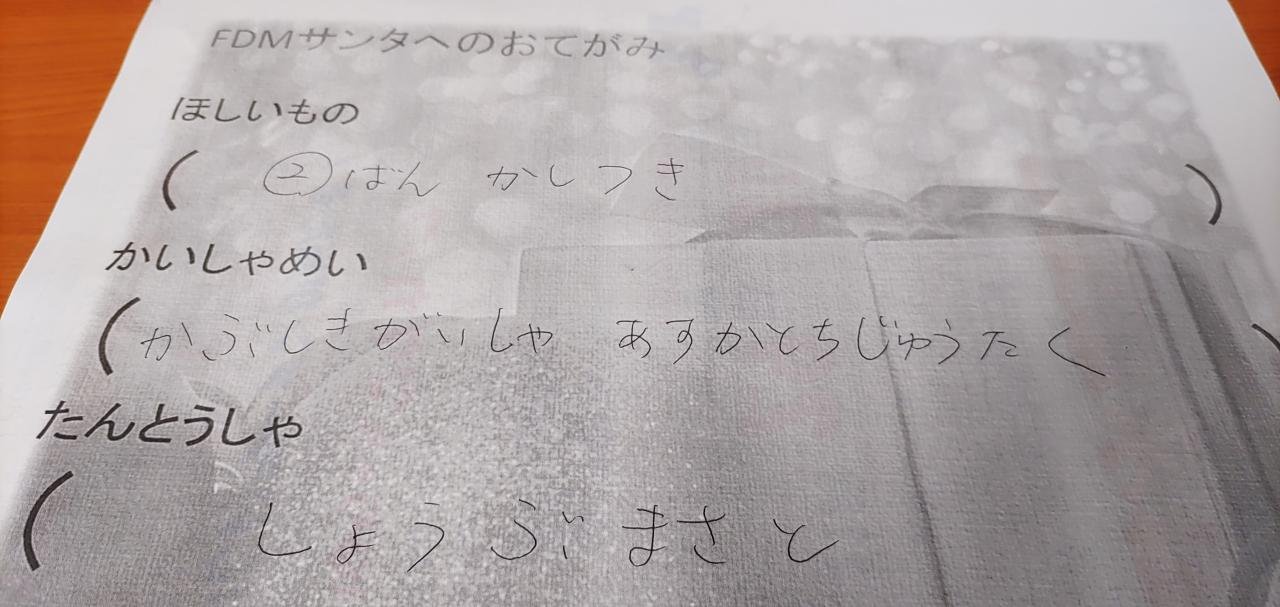 FDMサンタへのおてがみ
ほしいもの
( ②ばん かしつき )
かいしゃめい
(かぶしきがいしゃ あすかとちじゅうたく)
たんとうしゃ
( しょうぶ まさと